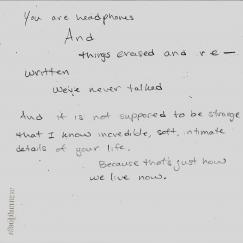 You are headphones
And
things erased and re-
written
We've never talked
And it is not supposed to be strange
that I know incredible, soft, intimate
details of your life.
Because that's just how
we live now.